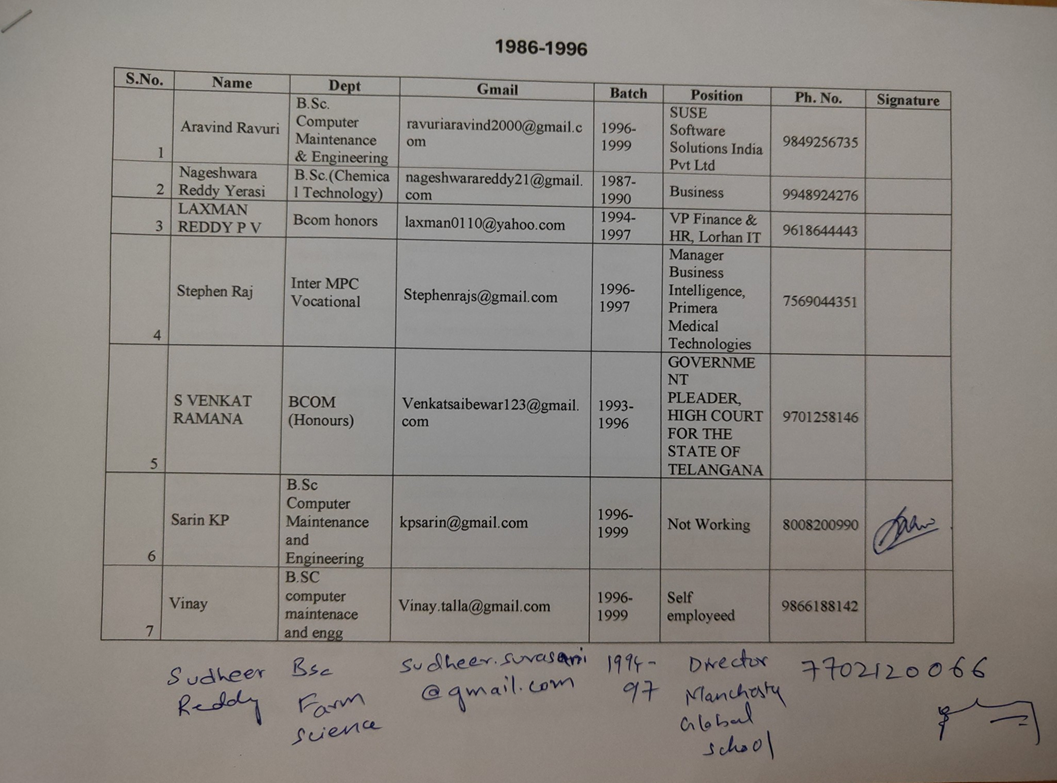 1986-1996
S.No. Name Dept Gmail Batch Position Ph. No. Signature
1 Aravind Ravuri B.Sc. Computer Maintenance & Engineering ravuriaravind2000@gmail.com 1996-1999 SUSE Software Solutions India Pvt Ltd 9849256735
2 Nageshwara Reddy Yerasi B.Sc.(Chemical Technology) nageshwarareddy21@gmail.com 1987-1990 Business 9948924276
3 LAXMAN REDDY P V Bcom honors laxman0110@yahoo.com 1994-1997 VP Finance & HR, Lorhan IT 9618644443
4 Stephen Raj Inter MPC Vocational Stephenrajs@gmail.com 1996-1997 Manager Business Intelligence, Primera Medical Technologies 7569044351
5 S VENKAT RAMANA BCOM (Honours) Venkatsaibewar123@gmail.com 1993-1996 GOVERNMENT PLEADER, HIGH COURT FOR THE STATE OF TELANGANA 9701258146
6 Sarin KP B.Sc Computer Maintenance and Engineering kpsarin@gmail.com 1996-1999 Not Working 8008200990
7 Vinay B.SC computer maintenace and engg Vinay.talla@gmail.com 1996-1999 Self employeed 9866188142
Sudheer Reddy Bsc Farm Science sudheer.surasani@gmail.com 1994-97 Director Global School 7702120066